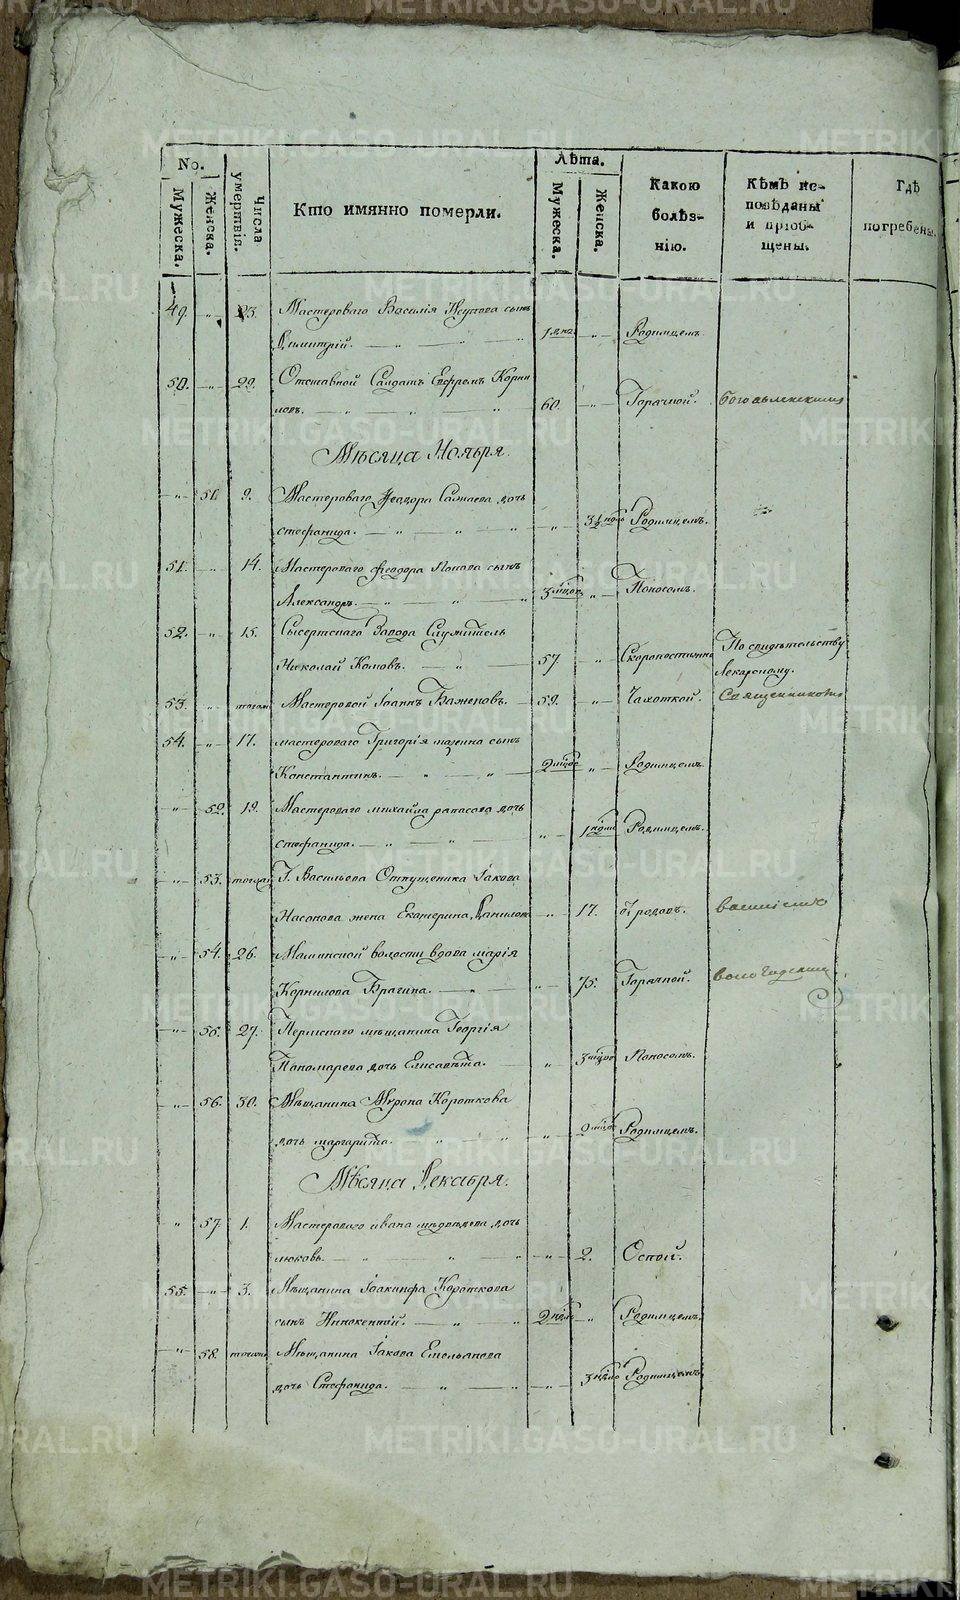 METRIKI.GASO-URAL.RU
No.
Мужеска.
Женска.
Числа умертвія.
Кто имянно померли.
Лѣта.
Мужеска.
Женска.
Какою болѣз-
нію.
Кѣмъ ис-
повѣданы
и пріоб-
щены.
Гдѣ
погребены.
49. 23. Мастероваго Василія сынъ
Димитрій. Родимцемъ
50. 29. Отставной Салдатъ Ефремъ Корни
ловъ. 60. Горячной.
Мѣсяца Ноября
51. 9. Мастероваго Ѳеодора дочь
стефанида. Родимцемъ.
51. 14. Мастероваго Ѳеодора Попова сынъ
Александръ. Поносомъ.
52. 15. Сысертскаго Завода Служитель
Николай Комовъ. 57. Скоропостижно По свидѣтельству
Лекарскому.
53. Мастеровой Іоаннъ Баженовъ. 59. Чахоткой.
54. 17. мастероваго Григорія сынъ
Константинъ. Родимцемъ
52. 19. Мастероваго михайла дочь
стефанида. Родимцемъ.
53. Г. Васильева Отпущеника Іакова
Насонова жена Екатерина Данилова 17. родовъ.
54. 26. Маминской волости вдова марія
Корнилова Брагина. 75. Горячной.
55. 27. Пермскаго мѣщанина Георгія
Пономарева дочь Елисавета. Поносомъ.
56. 30. Мѣщанина Мурона Короткова
дочь маргарита. Родимцемъ.
Мѣсяца Декабря.
57. 1. Мастероваго ивана дочь
любовь. 2. Оспой.
55. 3. Мѣщанина Іоакинфа Короткова
сынъ Инокентій. Родимцемъ.
58. Мѣщанина Іакова Емельянова
дочь Стефанида. Родимцемъ